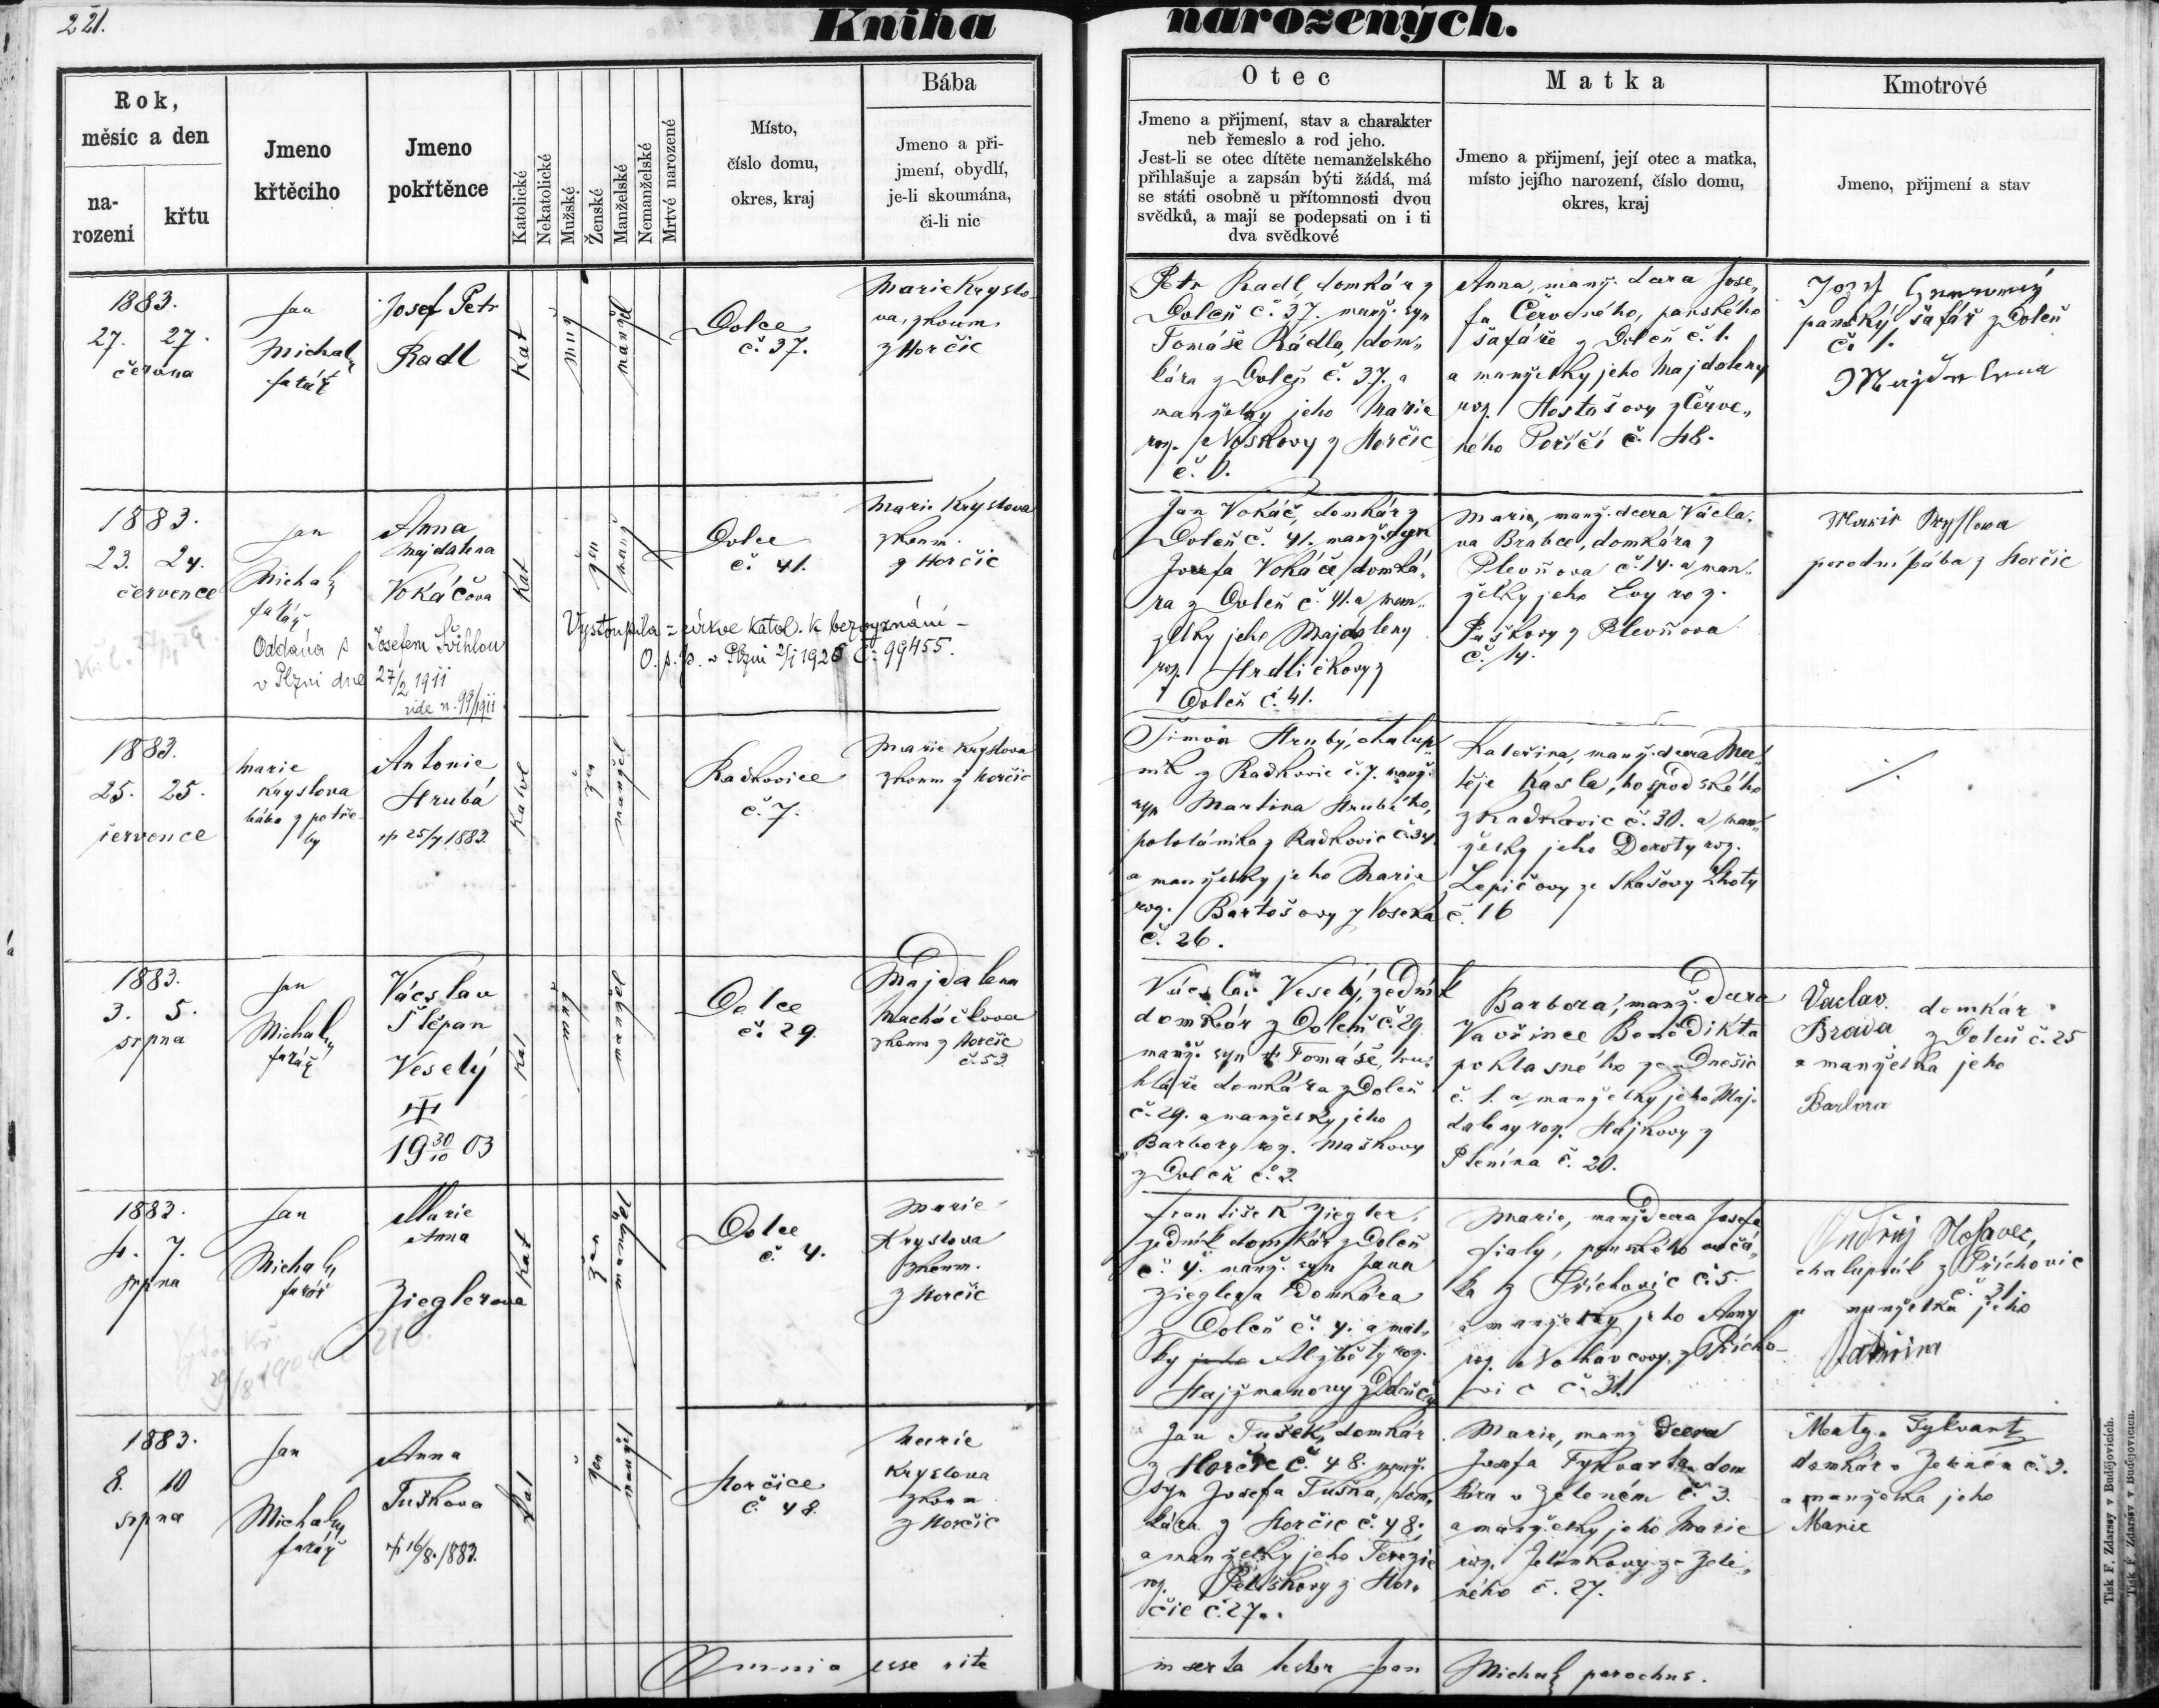 221.
Kniha narozených.
Rok,
měsíc a den
na-
rození
křtu
Jmeno
křtěcího
Jmeno
pokřtěnce
Katolické
Nekatolické
Mužské
Ženské
Manželské
Nemanželské
Mrtvé narozené
Místo,
číslo domu,
okres, kraj
Bába
Jmeno a při-
jmení, obydlí,
je-li skoumána,
či-li nic
Otec
Jmeno a přijmení, stav a charakter
neb řemeslo a rod jeho.
Jest-li se otec dítěte nemanželského
přihlašuje a zapsán býti žádá, má
se státi osobně u přítomnosti dvou
svědků, a mají se podepsati on i ti
dva svědkové
Matka
Jmeno a přijmení, její otec a matka,
místo jejího narození, číslo domu,
okres, kraj
Kmotrové
Jmeno, přijmení a stav
1883.
27. 27.
června
Jan
Michal
farář
Josef Petr
Radl
Kat
muž
manžel
Dolce
č. 37.
Marie Kryslo-
va, zkoum.
z Horčic
Petr Radl, domkář z
Doleň č. 37. manž. syn
Tomáše Rádla, dom„
káře z Dolen č. 37. a
manželky jeho Marie
roz. Noskovy z Horčic
č. 1.
Anna, manž. dcera Jose„
fa Červeného, panského
šafáře z Dolen č. 1.
a manželky jeho Majdaleny
roz. Hostašovy z Červe„
ného Poříčí č. 48.
Josef
panský šafář z Dolen
č. 1.
Majdalena
1883.
23. 24.
července
Jan
Michal
farář
Anna
Majdalena
Vokáčova
Kat
žen
manž
Dolce
č. 41.
Marie Kryslova
zkoum.
z Horčic
Oddána s Josefem Švihlou
v Plzni dne 27/2 1911
vide n. 99/1911
Vystoupila z církve katol. k bezvyznání –
O. p. s. v Plzni 2/1 1925 č. 99455.
Jan Vokáč, domkář z
Dolen č. 41. manž. syn
Josefa Vokáče, domká„
ře z Dolen č. 41. a man„
želky jeho Majdaleny
roz. Hrdličkovy z
Dolen č. 41.
Marie, manž. dcera Václa„
va Brabce, domkáře z
Plevňova č. 14. a man„
želky jeho Evy roz.
Puškovy z Plevňova
č. 14.
Marie Kryslova
porodní bába z Horčic
1883.
25. 25.
července
Marie
Kryslova
bába z potře-
by
Antonie
Hrubá
† 25/7 1883.
Katol
žen
manžel
Radkovice
č. 7.
Marie Kryslova
zkoum z Horčic
Šimon Hrubý, chalup„
ník z Radkovic č. 7. manž.
syn Martina Hrubého,
pololáníka z Radkovic č. 34.
a manželky jeho Marie
roz. Bartošovy z Voseka
č. 26.
Kateřina, manž. dcera Ma„
těje Kasla, hospodského
z Radkovic č. 30. a man„
želky jeho Doroty roz.
Lepičovy ze Skašovy Lhoty
č. 16
1883.
3. 5.
srpna
Jan
Michal
farář
Václav
Štěpan
Veselý
†
19 30/10 03
Kat
muž
manžel
Dolce
č. 29.
Majdalena
Macháčkova
zkoum z Horčic
č. 53
Václav Veselý, zedník
domkář z Dolen č. 29.
manž. syn † Tomáše, tru„
hláře domkáře z Dolen
č. 29. a manželky jeho
Barbory roz. Maškovy
z Dolen č. 2.
Barbora, manž. dcera
Vavřince Benedikta
poklasného ze Dnešic
č. 1. a manželky jeho Maj„
daleny roz. Hájkovy z
Ptenína č. 20.
Václav domkář
Brada z Dolen č. 25
a manželka jeho
Barbora
1883.
4. 7.
srpna
Jan
Michal
farář
Marie
Anna
Zieglerova
Kat
žen
manžel
Dolce
č. 4.
Marie
Kryslova
zkoum.
z Horčic
29/8 1904
František Ziegler,
zedník domkář z Dolen
č. 4. manž. syn Jana
Zieglera domkáře
z Dolen č. 4. a mat„
ky jeho Alžběty roz.
Hajžmanovy z
Marie, manž. dcera Josefa
Fialy, panského ovčá„
ka z Příchovic č. 5.
a manželky jeho Anny
roz. Nohavcovy z Přícho-
vic č. 31.
Ondřej Nohavec,
chalupník z Příchovic
č. 31.
a manželka jeho
Kateřina
1883.
8. 10
srpna
Jan
Michal
farář
Anna
Tuškova
† 16/8. 1883.
Kat
žen
manžel
Horčice
č. 48.
Marie
Kryslova
zkoum
z Horčic
Jan Tušek, domkář
z Horčic č. 48. manž.
syn Josefa Tuška, dom„
káře z Horčic č. 48.
a manželky jeho Terezie
roz. Pelíškovy z Hor„
čic č. 27.
Marie, manž. dcera
Josefa Tykvarta dom
káře v Zeleném č. 3.
a manželky jeho Marie
roz. Jelínkovy ze Zele„
ného č. 27.
Matyáš Tykvart
domkář v Zeleném č. 3.
a manželka jeho
Marie
Omnia esse rite inserta testor Jan Michal parochus.
Tisk F. Zdarssy v Budějovicích.
Tisk F. Zdarssy v Budějovicích.